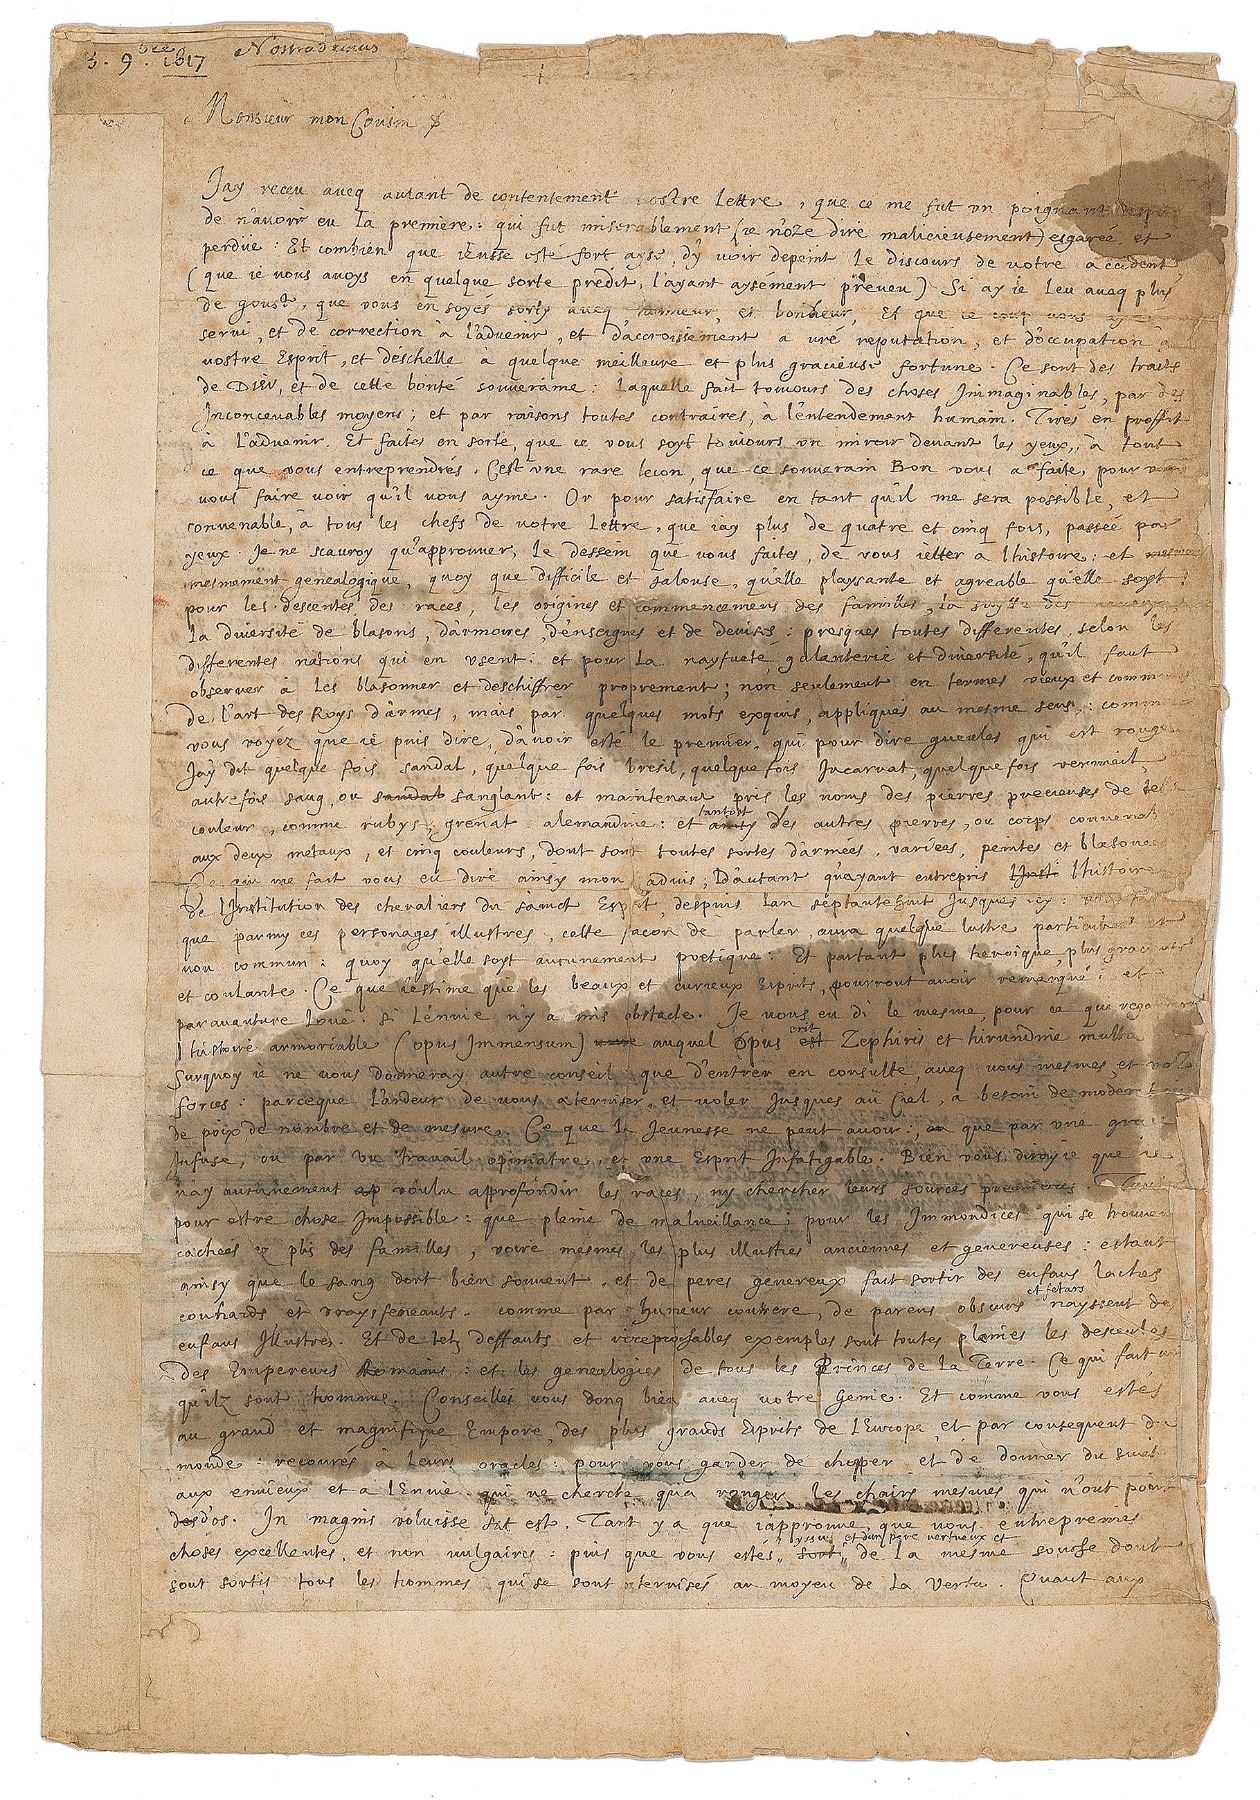 3. 9.bre 1617 Nostradamus
Monsieur mon Cousin
Jay receu aveq autant de contentement vostre Lettre, que ce me fut vn poignant
de n'auoir eu la premiere: qui fut miserablement (ie n'oze dire malicieusement) esgarée, et
perdüe: Et combien que i'eusse esté fort ayse, d'y voir depeint le discours de votre accident
(que ie vous avoys en quelque sorte predit, l'ayant aysément préveu) Si ay ie leu aveq plus
de goust, que vous en soyés sorty aveq honneur, et bonheur, Et que ce coup vous ayt
servi, et de correction à l'advenir, et d'accroissement a vré reputation, et d'occupation a
vostre Esprit, et d'eschelle à quelque meilleure et plus gracieuse fortune. Ce sont des traits
de DIEV, et de cette bonté souveraine: Laquelle fait tousiours des choses Immaginables, par des
Inconcevables moyens; et par raisons toutes contraires, à l'entendement humain. Tirés en proffit
à l'advenir. Et faites en sorte, que ce vous soyt tousiours vn miroir devant les yeux, à tout
ce que vous entreprendrés. C'est vne rare leçon, que ce souverain Bon vous a faite, pour
vous faire voir qu'il vous ayme. Or pour satisfaire en tant qu'il me sera possible, et
convenable, à tous les chefs de votre Lettre, que i'ay plus de quatre et cinq fois, passée par
yeux. Je ne sçauroy qu'approuver, le dessein que vous faites, de vous ietter a l'histoire: et
mesmement genealogique, quoy que difficile et Jalouse, qu'elle playsante et agreable qu'elle soyt:
pour les descentes des races, les origines et commencemens des familles, la suytte des
La diversité de blasons, d'armoires, d'enseignes et de devises: presques toutes differentes, selon les
differentes nations qui en vsent: et pour La nayfueté, galanterie et diversité, qu'il faut
observer à les blasonner et deschiffrer proprement; non seulement en termes vieux et comm
de l'art des Roys d'armes, mais par quelques mots exquis, appliqués au mesme sens: comme
vous voyez que ie puis dire, d'avoir esté le premier, qui pour dire gueules qui est rouge
Jay dit quelque fois sandal, quelque fois bresil, quelque fois Incarnat, quelque fois vermeil,
autrefois sang, ou sandal sanglant: et maintenant pris les noms des pierres precieuses de tel
couleur, comme rubys, grenat, alemandine: et tantost des autres pierres, ou corps convenab
aux deux metaux, et cinq couleurs, dont sont toutes sortes d'armées, variées, peintes et blasonées
Ce qui me fait vous en dire ainsy mon advis; D'autant qu'ayant entrepris l'histoire
de l'Institution des chevaliers du Sainct Esprit, despuis l'an septantehuit Jusques icy:
que parmy ces personages illustres, cette façon de parler, aura quelque lustre particulier et
non commun: quoy qu'elle soyt aucunement poetique: Et partant plus heroique, plus gracieuse
et coulante. Ce que i'estime que les beaux et curieux Esprits, pourront avoir remarqué: et
paravanture Loué: si L'envie n'y a mis obstacle. Je vous en di le mesme, pour ce que rega
l'histoire armoriable (opus Immensum) auquel opus est erit Zephiris et hirundine multa
Surquoy ie ne vous donneray autre conseil, que d'entrer en consulte, aveq vous mesmes et voz
forces: parceque l'ardeur de vous aterniser, et voler Jusques au Ciel, a besoin de moder
de poix de nombre et de mesure. Ce que la Jeunesse ne peut avoir, que par vne grace
Infuse, ou par vn travail opiniatre, et vne Esprit Infatigable. Bien vous diroyie que ie
n'ay aucunement voulu approfondir les races, ny chercher leurs sources premieres.
pour estre chose Impossible: que pleine de malveillance; pour les Immondices qui se trouvent
cachées ez plis des familles, voire mesmes les plus illustres anciennes et genereuses: estant
ainsy que le sang dort bien souvent, et de peres genereux fait sortir des enfans lasches
couhards et vrays feneants. comme par humeur contrere, de parens obscurs et fetars nayssent de
enfans Illustres. Et de telz deffauts et irreprochables exemples sont toutes plaines les descentes
des Empereurs Romains: et les genealogies de tous les Princes de la Terre. Ce qui fait
qu'ilz sont hommes. Conseilles vous donq bien aveq votre Genie. Et comme vous estés
au grand et magnifique Empore, des plus grands Esprits de l'Europe, et par consequent du
monde: recourés à leurs oracles: pour vous garder de chopper et de donner du suiet
aux envieux et a l'Envie qui ne cherche qu'a ronger les chairs mesmes qui n'ont point
d'os. In magnis voluisse sat est. Tant y a que i'approuve, que vous entreprenies
choses excellentes, et non vulgaires: puis que vous estés yssu et d'un pere vertueux et sorti de la mesme souche dont
sont sortis tous les hommes qui se sont aternisés au moyen de la Vertu. Quant aux